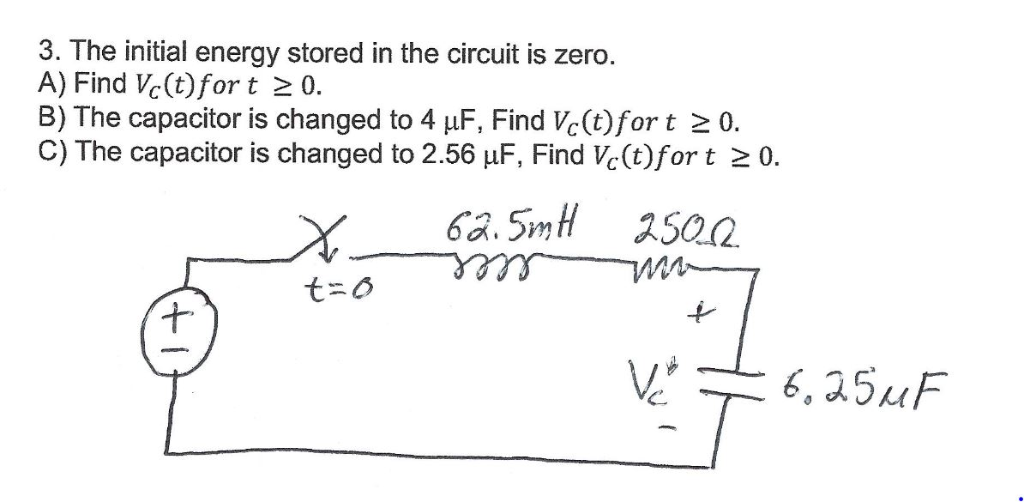 3. The initial energy stored in the circuit is zero.
A) Find V_C(t) for t ≥ 0.
B) The capacitor is changed to 4 μF, Find V_C(t) for t ≥ 0.
C) The capacitor is changed to 2.56 μF, Find V_C(t) for t ≥ 0.
62.5mH 250Ω
t=0
+
+
−
V_C
6.25μF
−